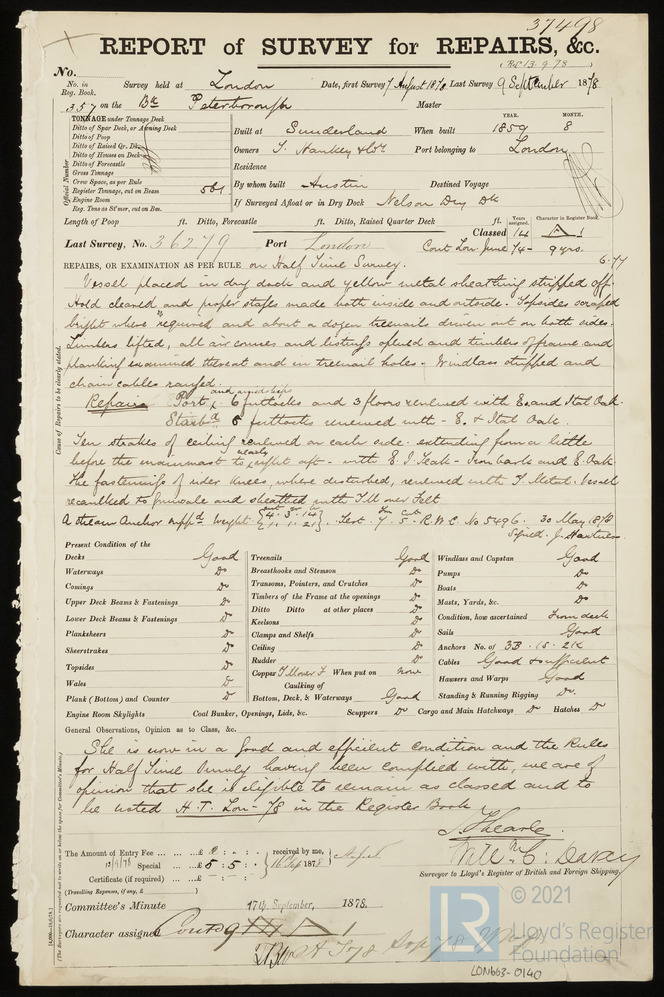 37498
REPORT of SURVEY for REPAIRS, &c.
(Rec 13.9.78)
No.
No. in Reg. Book. Survey held at London Date, first Survey 7 August 1878 Last Survey 9 September 1878
357 on the Bk Peterborough Master
TONNAGE under Tonnage Deck
Ditto of Spar Deck, or Awning Deck
Ditto of Poop
Ditto of Raised Qr. Dk.
Ditto of Houses on Deck
Ditto of Forecastle
Gross Tonnage
Crew Space, as per Rule
Register Tonnage, cut on Beam 501
Engine Room
Reg. Tons as St'mer, cut on Bm.
Official Number
YEAR. MONTH.
Built at Sunderland When built 1859 8
Owners T. Hankey & Co Port belonging to London
Residence
By whom built Austin Destined Voyage
If Surveyed Afloat or in Dry Dock Nelson Dry Dk
Length of Poop ft. Ditto, Forecastle ft. Ditto, Raised Quarter Deck ft.
Years assigned. Character in Register Book.
Classed 14 A 1
Last Survey, No. 36279 Port London Cont Lon. June 74 - 9 yrs.
6.77
REPAIRS, OR EXAMINATION AS PER RULE on Half Time Survey.
Vessel placed in dry dock and yellow metal sheathing stripped off.
Hold cleared and proper stages made both inside and outside. Topsides scraped
bright where required and about a dozen treenails driven out on both sides.
Limbers lifted, all air courses and listings opened and timbers of frame and
planking examined thereat and in treenail holes. Windlass stripped and
chain cables ranged.
Repairs. Port and midships 6 futtocks and 3 floors renewed with E. and Ital Oak.
Starbd 5 futtocks renewed with - E. & Ital Oak.
Ten strakes of ceiling renewed on each side extending from a little
before the mainmast to nearly right aft - with E. I. Teak - Ironbark and E. Oak
The fastenings of rider knees, where disturbed, renewed with Y. Metal. Vessel
recaulked to gunwale and sheathed with Y.M over Felt
A stream Anchor suppd Weight {4.3.14 / 1.1.21}. Test 7.5. R.W.C No 5496. 30 May 1878
Cause of Repairs to be clearly stated.
Present Condition of the
Decks Good
Waterways Do
Comings Do
Upper Deck Beams & Fastenings Do
Lower Deck Beams & Fastenings Do
Planksheers Do
Sheerstrakes Do
Topsides Do
Wales Do
Plank (Bottom) and Counter Do
Treenails Good
Breasthooks and Stemson Do
Transoms, Pointers, and Crutches Do
Timbers of the Frame at the openings Do
Ditto Ditto at other places Do
Keelsons Do
Clamps and Shelfs Do
Ceiling Do
Rudder Do
Copper Y.M over F When put on now
Caulking of
Bottom, Deck, & Waterways Good
Windlass and Capstan Good
Pumps Do
Boats Do
Masts, Yards, &c. Do
Condition, how ascertained From deck
Sails Good
Anchors No. of 3B. 1S. 2K
Cables Good & sufficient
Hawsers and Warps Good
Standing & Running Rigging Do.
Engine Room Skylights Coal Bunker, Openings, Lids, &c. Scuppers Do Cargo and Main Hatchways Do Hatches Do
General Observations, Opinion as to Class, &c.
She is now in a good and efficient condition and the Rules
for Half Time Survey having been complied with, we are of
opinion that she is eligible to remain as classed and to
be noted H.T. Lon-78 in the Register Book
The Amount of Entry Fee ... £ : :
13/9/78 Special ... £5 : 5 :
Certificate (if required) ... £ : :
(Travelling Expenses, if any, £ )
received by me,
16 Sep 1878
Surveyor to Lloyd's Register of British and Foreign Shipping.
Committee's Minute 17th September, 1878.
Character assigned Cont 9 A 1
© 2021
LR
Lloyd's Register
Foundation
LON663-0140